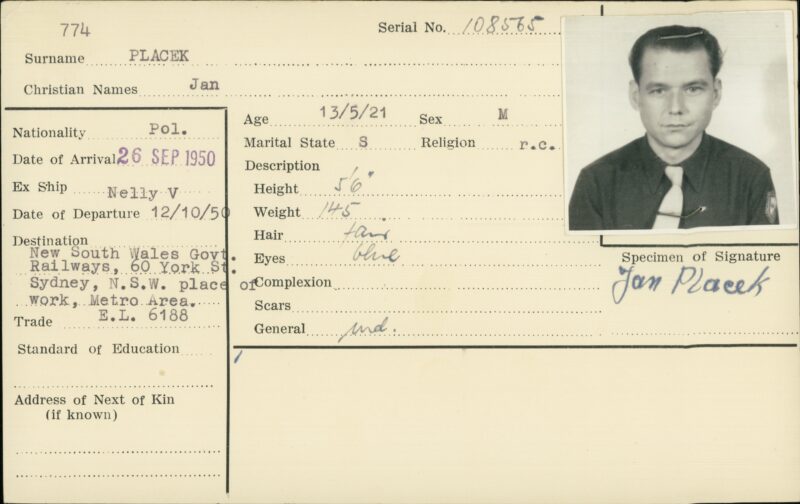 774
Serial No. 108565
Surname PLACEK
Christian Names Jan
Nationality Pol.
Date of Arrival 26 SEP 1950
Ex Ship Nelly V
Date of Departure 12/10/50
Destination
New South Wales Govt.
Railways, 60 York St.
Sydney, N.S.W. place of
work, Metro Area.
Trade E.L. 6188
Standard of Education
Address of Next of Kin
(if known)
Age 13/5/21 Sex M
Marital State S Religion r.c.
Description
Height 5'6"
Weight 145
Hair fair
Eyes blue
Complexion
Scars
General
Specimen of Signature
Jan Placek